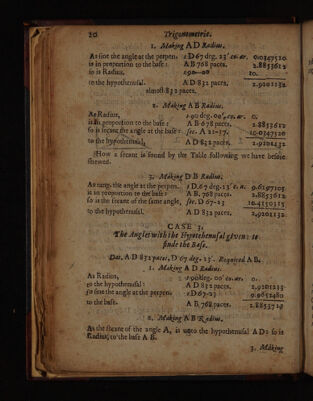 20 Trigonometrie.
1. Making A D Radius.
As sine the angle at the perpen. sD 67 deg. 23' co. ar. 0.0347520
is in proportion to the base: A B 768 paces. 2.8853612
so is Radius, s90—00 10.
to the hypothenusal. A D 832 paces. 2.9201132
almost 832 paces.
2. Making A B Radius.
As Radius, s 90 deg. 00', co. ar. 0.
is in proportion to the base: A B 768 paces. 2.8853612
so is secant the angle at the base: sec. A 22-37. 10.0347520
to the hypothenusal, A D 832 paces. 2.9201132
How a secant is found by the Table following we have before
shewed.
3. Making D B Radius.
As tang. the angle at the perpen. D 67 deg. 23' c. a. 9.6197105
is in proportion to the base: A B, 768 paces. 2.8853612
so is the secant of the same angle, sec. D 67-23
to the hypothenusal. A D 832 paces, 2.9201132
CASE 3.
The Angles with the Hypothenusal given: to
finde the Base.
Dat. A D 832 paces, D 67 deg. 23'. Required A B.
1. Making A D Radius.
As Radius, s 90 deg. 00' co. ar. 0.
to the hypothenusal: A D 832 paces. 2.9201233
so sine the angle at the perpen. sD 67-23 9.9652480
to the base. A B, 768 paces. 2.8853713
2. Making A B Radius.
As the secant of the angle A, is unto the hypothenusal A D: so is
Radius, to the base A B.
3. Making